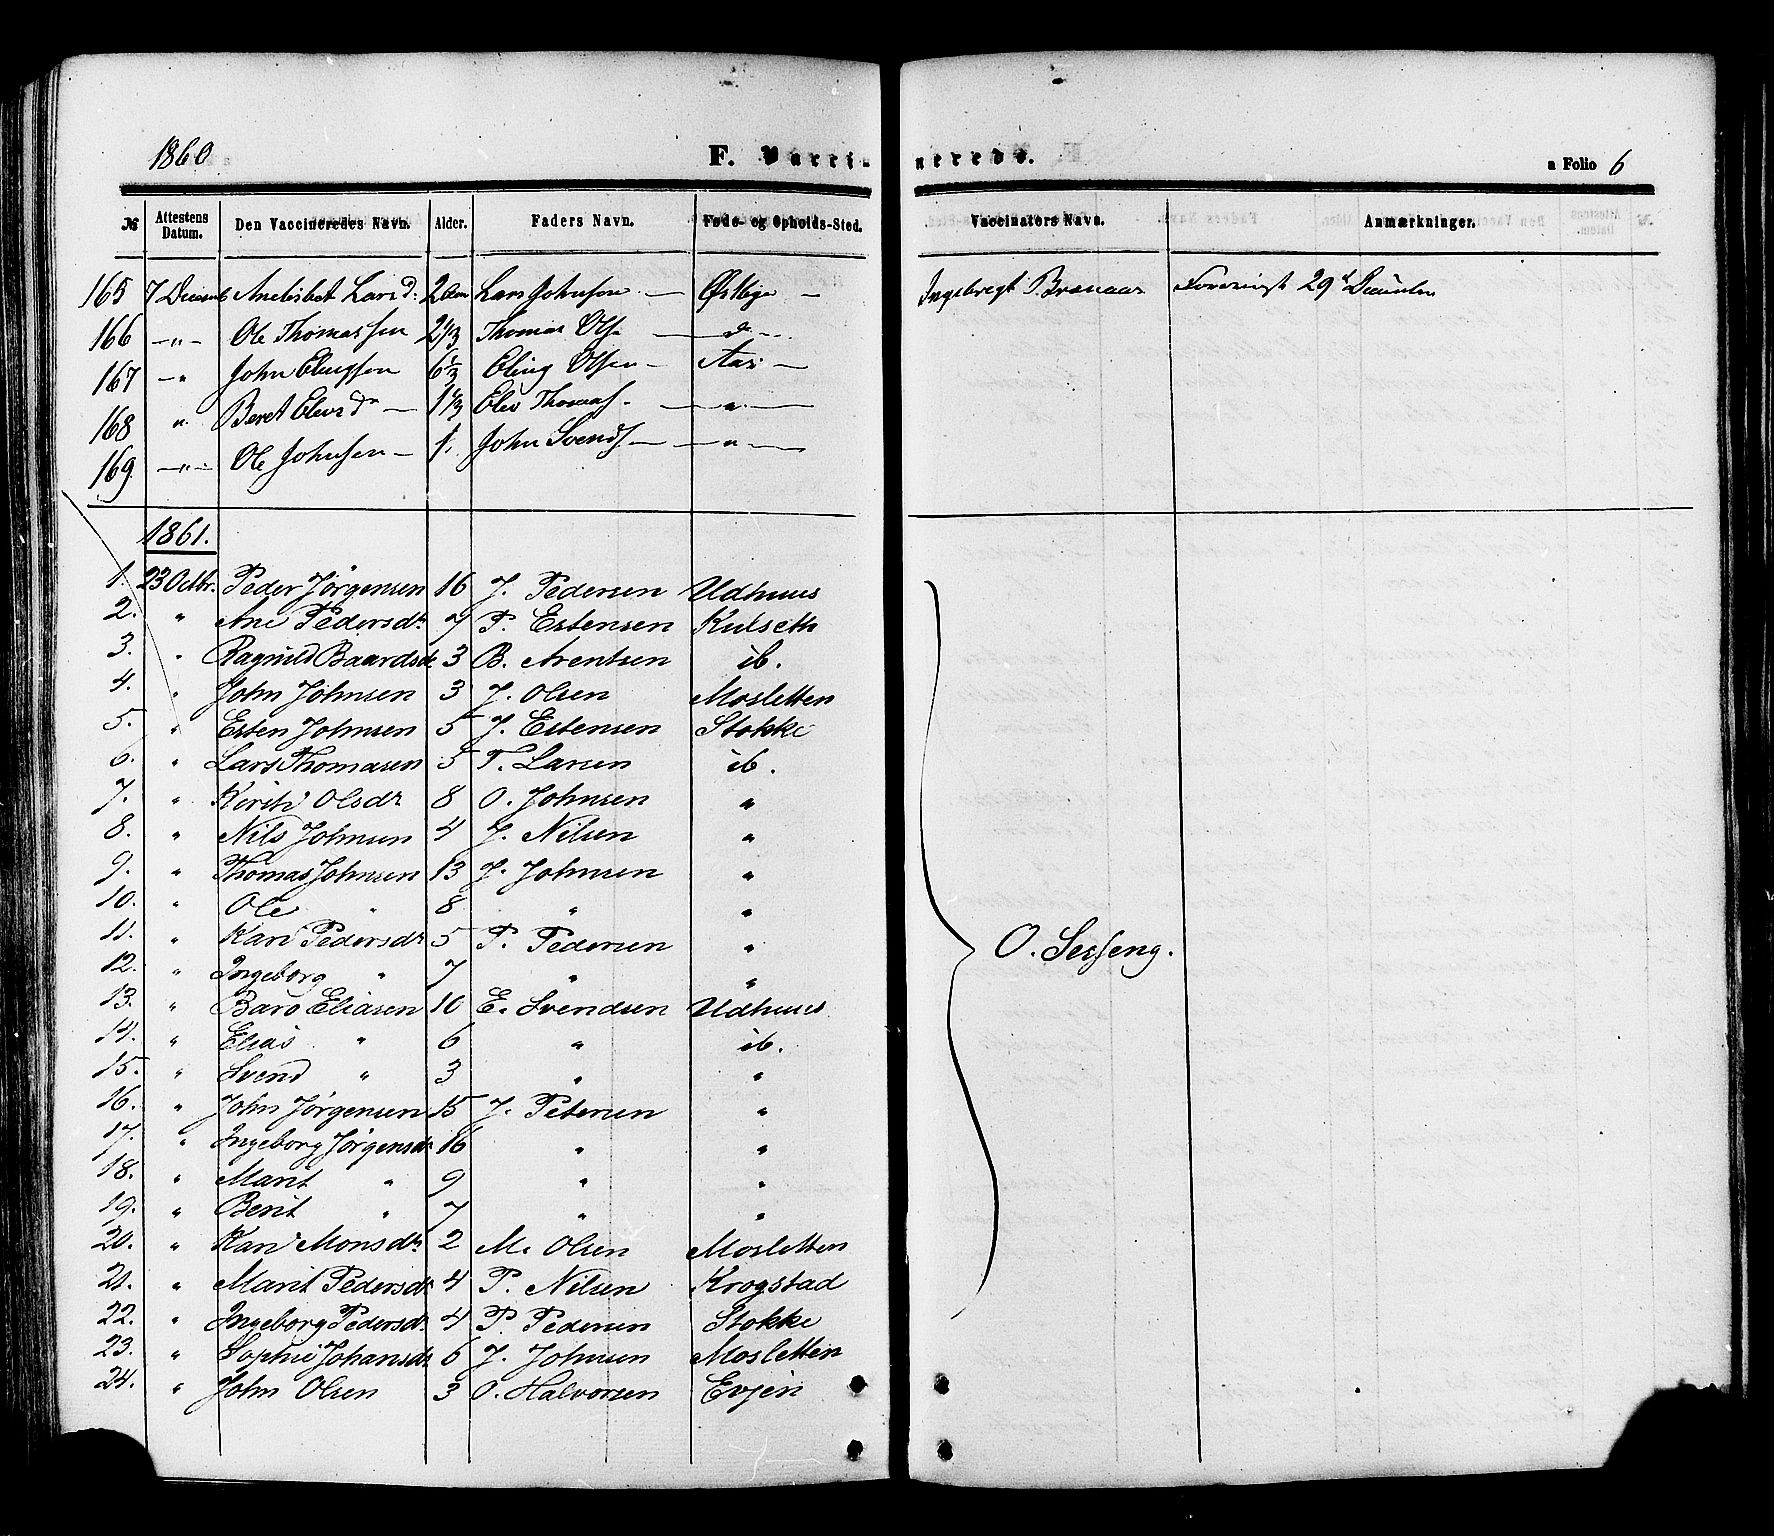 1860
F. Vaccinerede.
a Folio 6
№ Attestens Datum. Den Vaccineredes Navn. Alder. Faders Navn. Føde- og Opholds-Sted. Vaccinators Navn. Anmærkninger.
165 7 Decemb Larsd: 2 Lars Johnsen — Østbye — Ingebregt 29 Decembr
166 —„— Ole Thomassen 2 1/3 Thomas Ols. — d —
167 —„ John Elingsen 6 1/3 Eling Olsen — Aas —
168 „ Beret 1 1/3 Thomas. — „ —
169 —„— Ole Johnsen — 1. John Svends. — „ —
1861.
1. 23 Octbr. Peder Jørgensen 16 J. Pedersen Udhuus
2. „ Ane Pedersdr 7 P. Estensen Kulseth
3. „ Ragnild Baardsdr 3 B. Arentsen ib.
4. „ John Johnsen 3 J. Olsen Mosletten
5. „ Esten Johnsen 5 J. Estensen Stokke
6. „ Lars Thomasen 5 T. Larsen ib.
7. „ Kirsti Olsdr 8 O. Johnsen „
8. „ Nils Johnsen 4 J. Nilsen „
9. „ Thomas Johnsen 13 J. Johnsen „
10. „ Ole „ 8 „ „
11. „ Kari Pedersdr 5 P. Pedersen „ O. Sesseng.
12. „ Ingeborg „ 7 „ „
13. „ Baro Eliasen 10 E. Svendsen Udhuus
14. „ Elias „ 6 „ ib.
15. „ Svend „ 3 „ „
16. „ John Jørgensen 15 J. Petersen „
17. „ Ingeborg Jørgensdr 16 „ „
18. „ Marit „ 9 „ „
19. „ Berit „ 7 „ „
20. „ Kari Monsdr 2 M. Olsen Mosletten
21. „ Marit Pedersdr 4 P. Nilsen Krogstad
22. „ Ingeborg Pedersdr 4 P. Pedersen Stokke
23. „ Sophie Johansdr 6 J. Johnsen Mosletten
24. „ John Olsen 3 O. Halvorsen Evjen